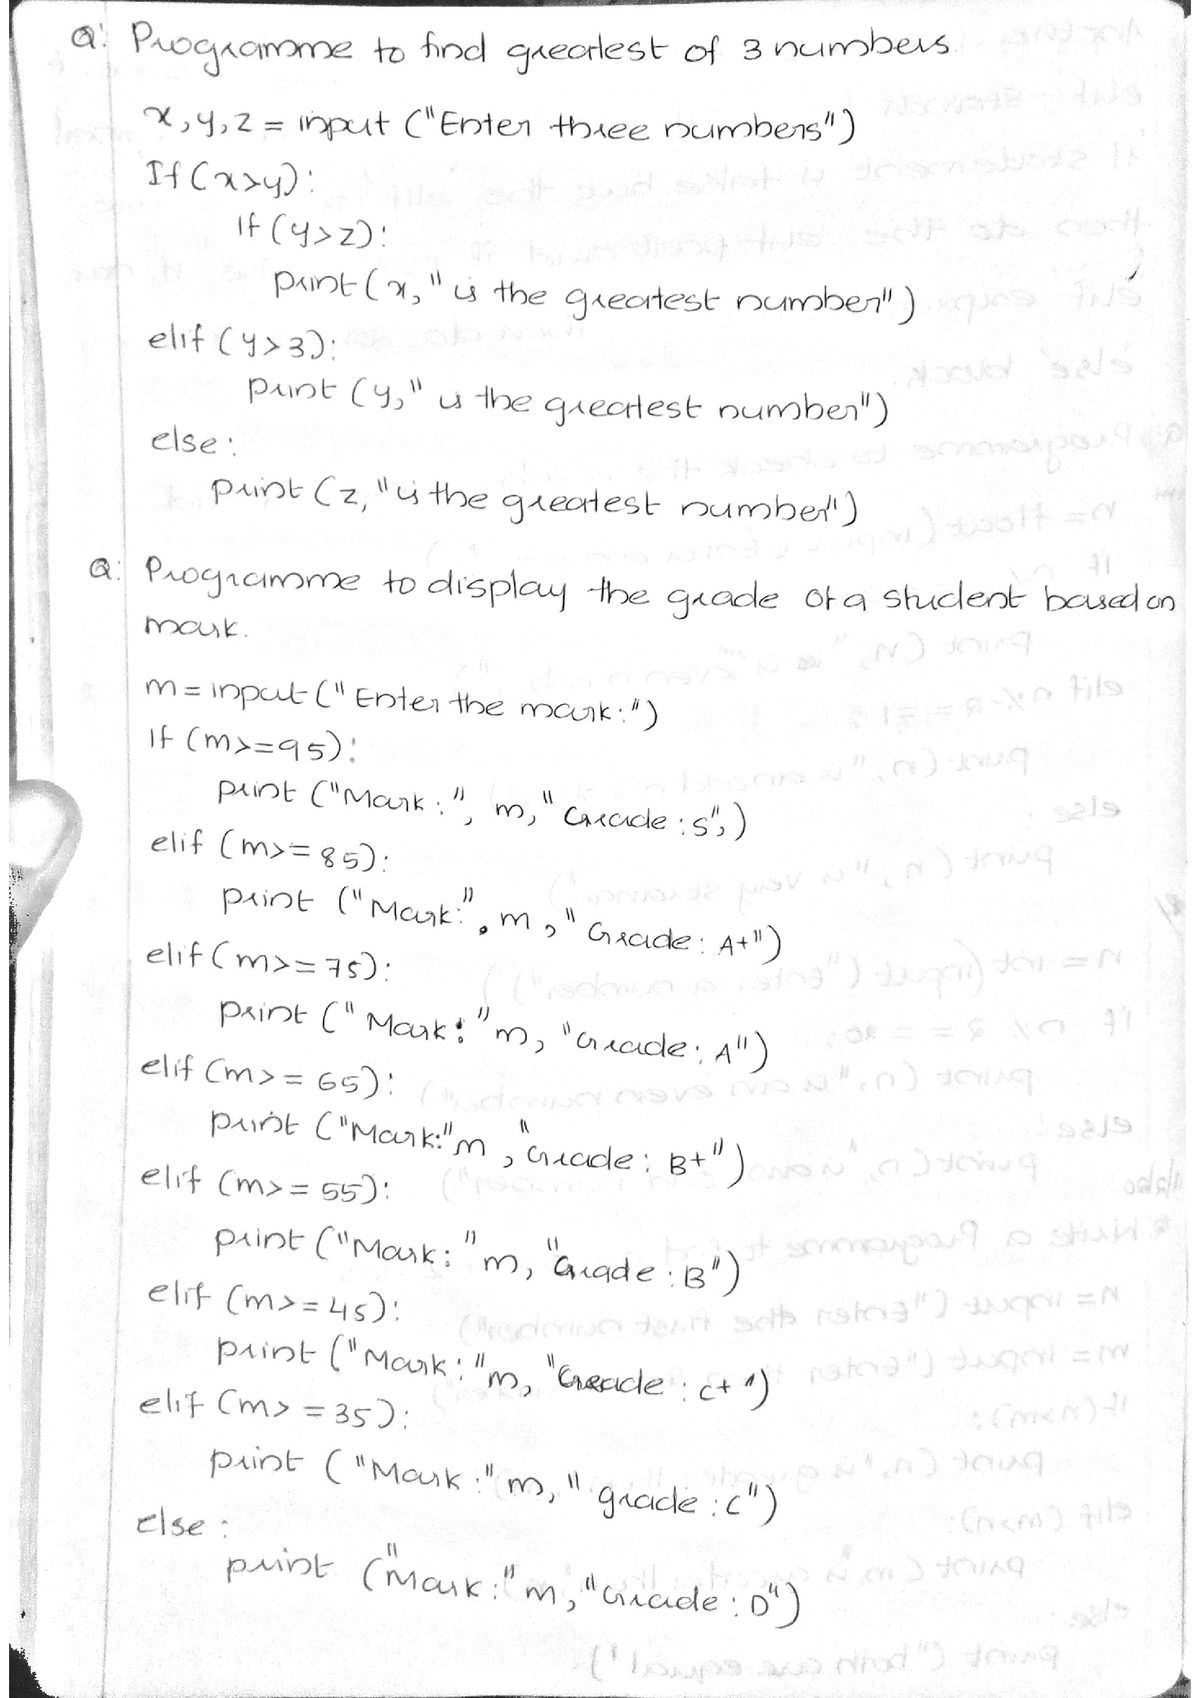 Q: Programme to find greatest of 3 numbers
x,y,z = input ("Enter three numbers")
If (x>y):
If (y>z):
print (x," is the greatest number")
elif (y>3):
print (y," is the greatest number")
else:
print (z,"is the greatest number")
Q: Programme to display the grade of a student based on
mark.
m = input ("Enter the mark:")
If (m>=95):
print ("Mark:", m," Grade:S",)
elif (m>=85):
print ("Mark:", m," Grade: A+")
elif (m>=75):
print (" Mark:"m, "Grade: A")
elif (m>= 65):
print ("Mark:"m ,"Grade: B+")
elif (m>= 55):
print ("Mark:"m, "Grade:B")
elif (m>=45):
print ("Mark:"m, "Grade : C+")
elif (m> =35):
print ("Mark:"m," grade :C")
else :
print ("Mark:"m,"Grade: D")